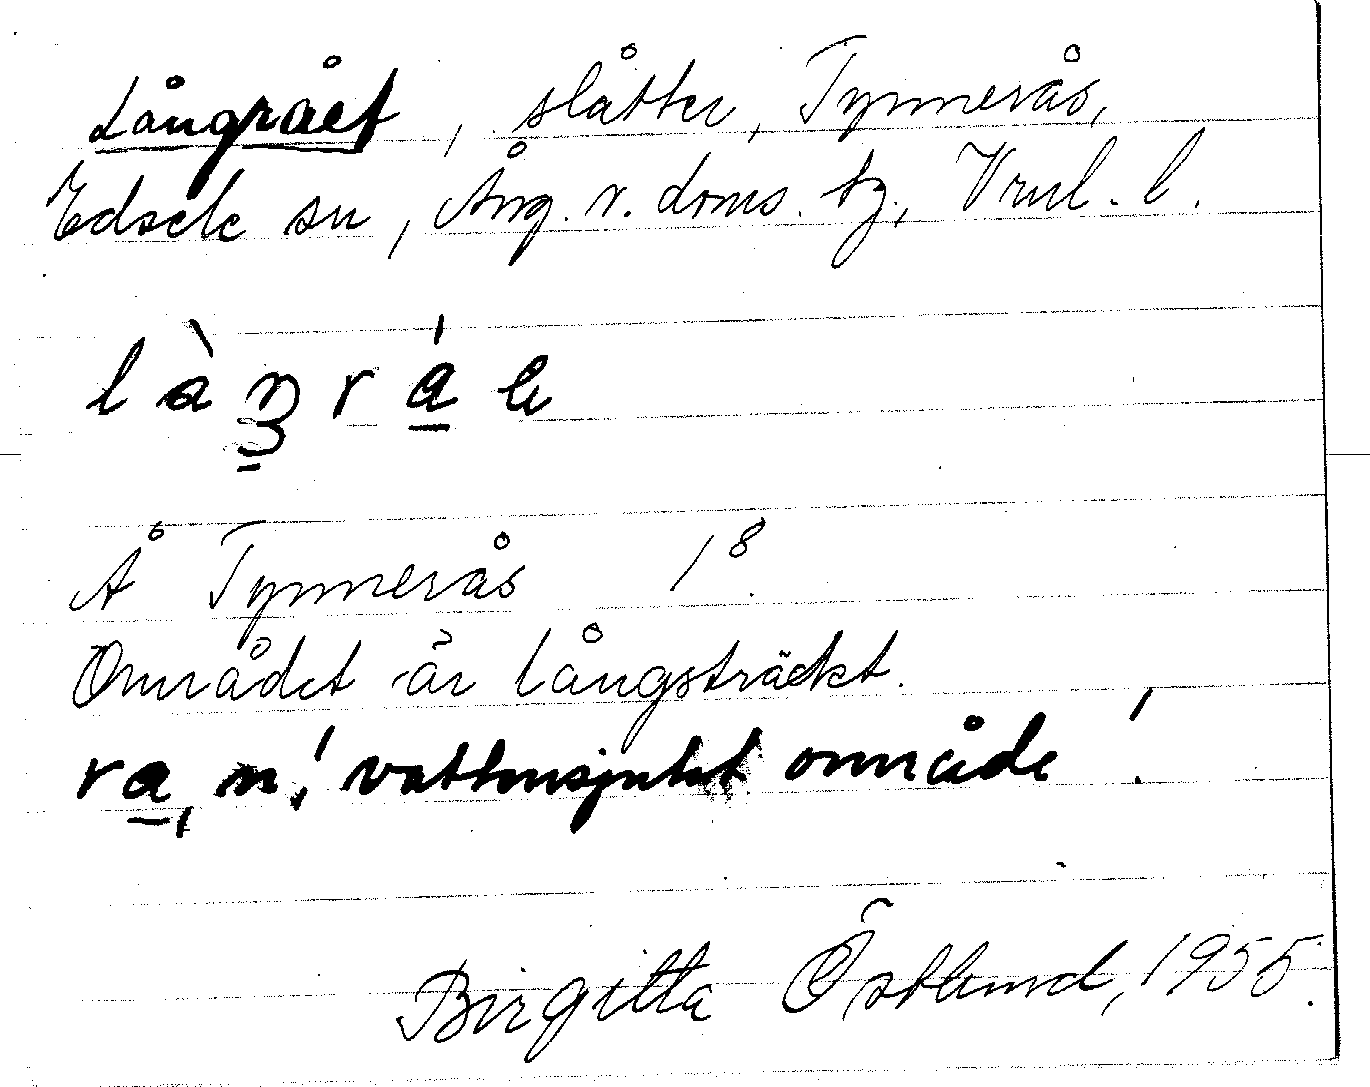 Långrået, slåtter, Tynnerås,
Edsele sn, Ång. v. doms. tg, Vnrl. l.
Å Tynnerås 1⁸
Området är långsträckt.
ra, n! vattensjukt område!
Birgitta Östlund, 1955.